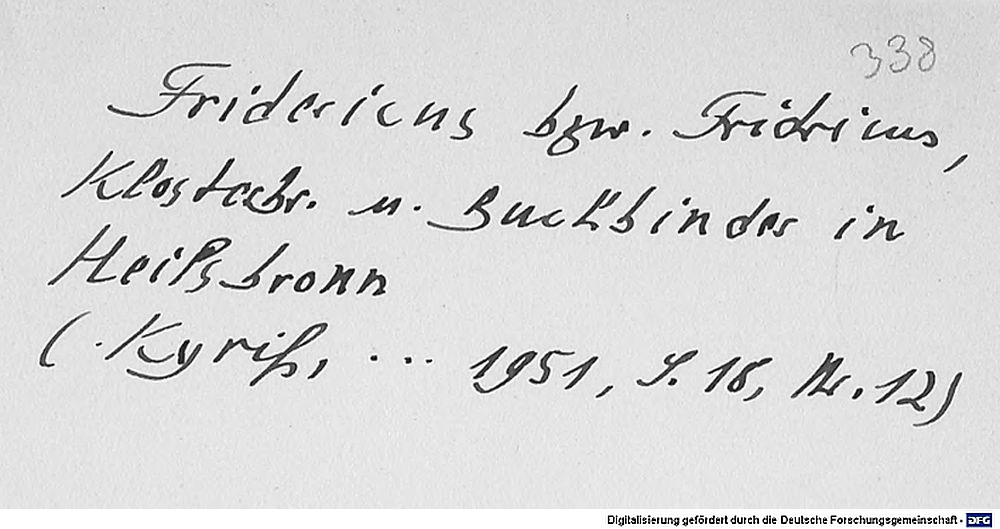 338
Fridericus bzw. Fridricus,
Klosterbr. u. Buchbinder in
Heilsbronn
(. Kyriß, ... 1951, S. 18, Nr. 12)
Digitalisierung gefördert durch die Deutsche Forschungsgemeinschaft - DFG